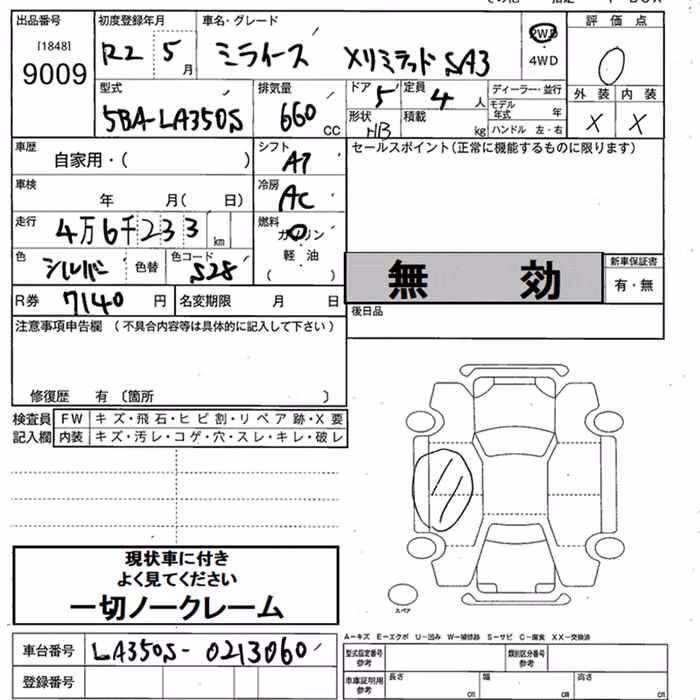 出品番号 初度登録年月 車名・グレード 評価点
[1848] 9009 R2 5月 ミライース XリミテッドSA3 2WD 4WD 0
型式 排気量 ドア 定員 ディーラー・並行 外装 内装
5BA-LA350S 660 CC 5 4人 モデル年式 年 X X
形状 HB 積載 kg ハンドル 左・右
車歴 自家用・( ) シフト AT セールスポイント(正常に機能するものに限ります)
車検 年 月( 日) 冷房 AC
走行 4万6千233km 燃料 ガソリン
色 シルバー 色替 色コード S28 軽油 ( ) 無効 新車保証書 有・無
R券 7140円 名変期限 月 日 後日品
注意事項申告欄 (不具合内容等は具体的に記入して下さい)
修復歴 有 〔箇所 〕
検査員 FW キズ・飛石・ヒビ割・リペア跡・X要
記入欄 内装 キズ・汚レ・コゲ・穴・スレ・キレ・破レ
現状車に付き
よく見てください
一切ノークレーム
スペア
A-キズ E-エクボ U-凹み W-補修跡 S-サビ C-腐食 XX-交換済
車台番号 LA350S-0213060 型式指定番号 参考 類別区分番号 参考
登録番号 車庫証明用 参考 長さ cm 幅 cm 高さ cm